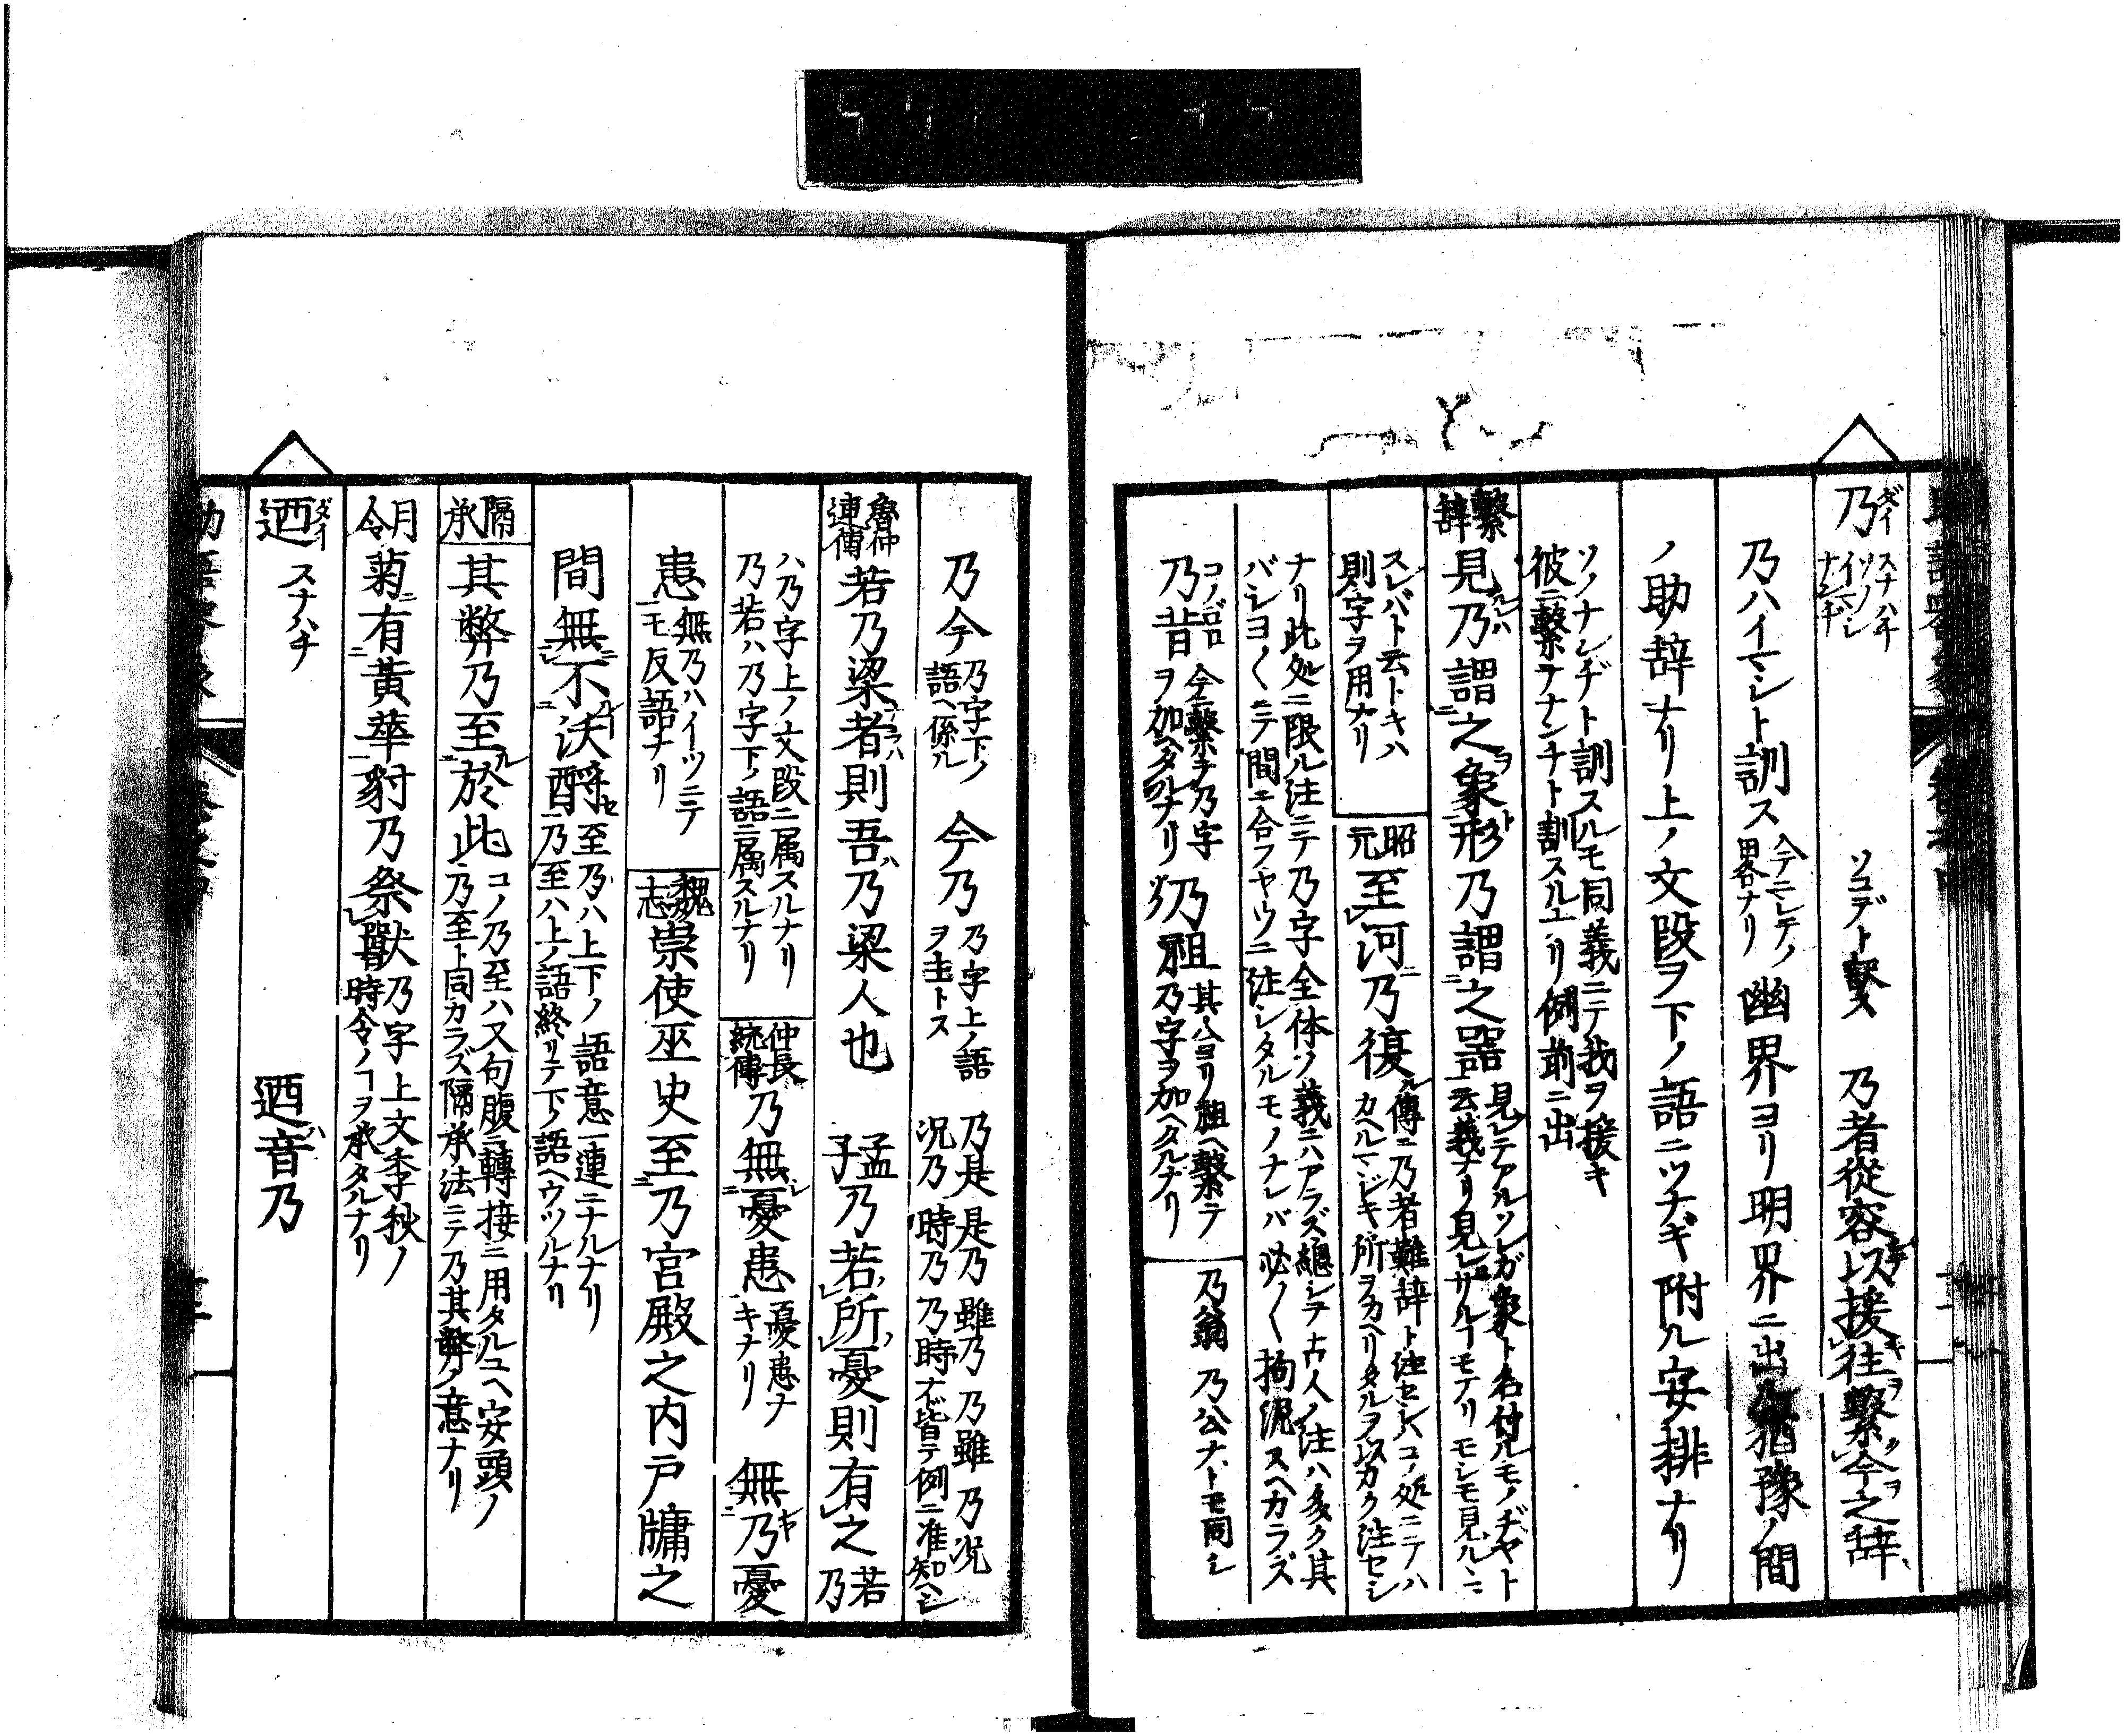 乃 ダイ スナハチ ソノ イマシ ナンヂ ソコデト訳ス 乃者從容シテ援往ヲ繫今ヲ之辞
乃ハイマシト訓ス 今ニシテノ畧ナリ 幽界ヨリ明界ニ出ル猶豫ノ間
ノ助辞ナリ上ノ文段ヲ下ノ語ニツナギ附ル安排ナリ
ソノナンヂト訓スルモ同義ニテ我ヲ援キ
彼ニ繫ヲナンチト訓スルナリ例前ニ出
繫辞 見乃謂之象形乃謂之器 見レテアルソレガ象ト名付ルモノヂヤト
云義ナリ見レザルヿモアリモシモ見ルニ
スレバト云トキハ
則字ヲ用ナリ
昭元 至河乃復 傳ニ乃者難辞ト注セシハコノ処ニテハ
カヘルマジキ所ヲカヘリタルヲ以カク注セシ
ナリ此処ニ限ル注ニテ乃字全体ノ義ニハアラズ總シテ古人ノ注ハ多ク其
バショ〱ニテ間ニ合フヤウニ注シタルモノナレバ必〱拘泥スヘカラズ
乃昔 コノゴロ 今ニ繫キ乃字
ヲ加ヘタルナリ 乃祖 其ハ今ヨリ祖ヘ繫テ
乃字ヲ加ヘタルナリ
乃翁 乃公ナトモ同シ
乃今 乃字下ノ
語ヘ係ル 今乃 乃字上ノ語
ヲ主トス 乃是 是乃 雖乃 乃雖 乃況
況乃 時乃 乃時ナド皆テ例ニ准知ヘシ
魯仲連傳 若乃梁者則吾乃梁人也 孟子 乃若所憂則有之 若乃
ハ乃字上ノ文段ニ属スルナリ
乃若ハ乃字下ノ語ニ属スルナリ
仲長統傳 乃無憂患 憂患ナ
キナリ 無乃憂
患 無乃ハイツニテ
モ反語ナリ
魏志 崇使巫史至乃宮殿之内戸牖之
間無不沃酹 至乃ハ上下ノ語意一連ニナルナリ
乃至ハ上ノ語終リテ下ノ語ヘウツルナリ
隔承 其弊乃至於此 コノ乃至ハ又句腹ニ轉接ニ用タルユヘ安頭ノ
乃至ト同カラズ隔承法ニテ乃其弊ノ意ナリ
月令 菊有黃華豺乃祭獸 乃字上文季秋ノ
時令ノヿヲ承タルナリ
迺 ダイ スナハチ 迺音ハ乃